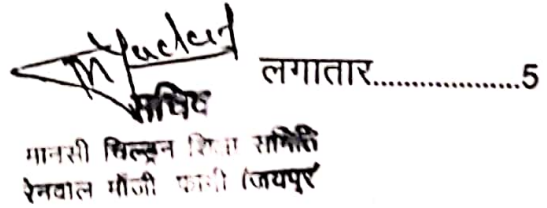 M Yadav लगातार..................5
सचिव
मानसी चिल्ड्रन शिक्षा समिति
रेनवाल माँजी फागी (जयपुर